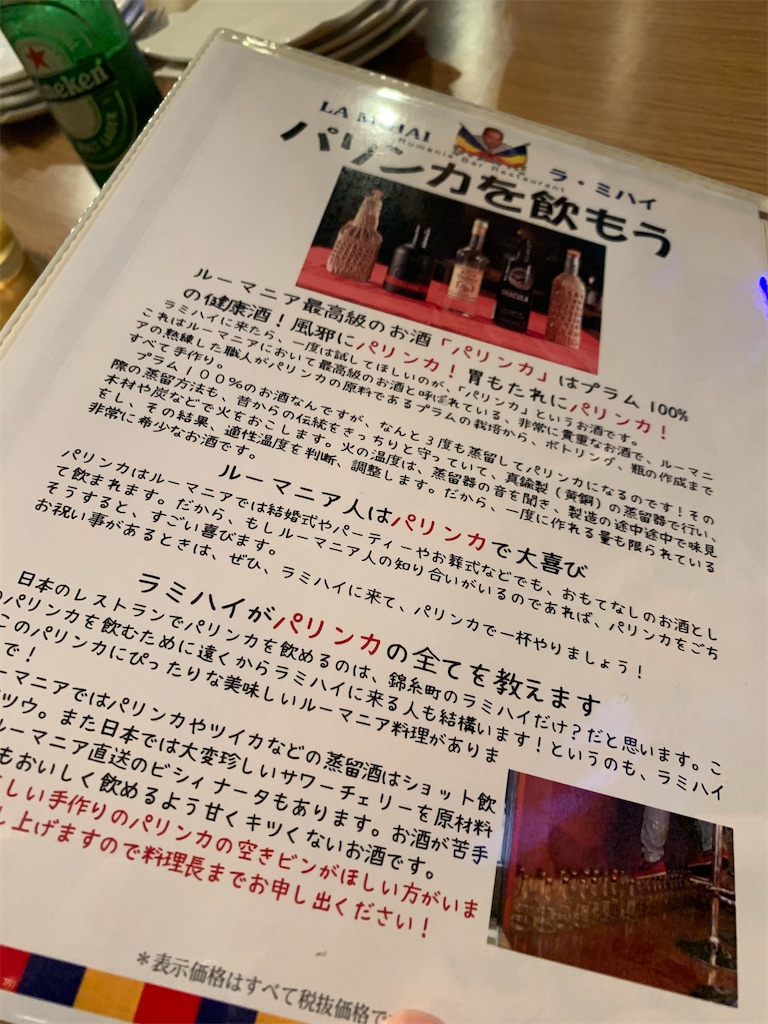 Heineken
LA MIHAI
Rumania Bar Restaurant
ラ・ミハイ
パリンカを飲もう
DRACULA
ルーマニア最高級のお酒「パリンカ」はプラム100%
の健康酒！風邪にパリンカ！胃もたれにパリンカ！
ラミハイに来たら、一度は試してほしいのが、「パリンカ」というお酒です。
これはルーマニアにおいて最高級のお酒と呼ばれている、非常に貴重なお酒で、ルーマニ
アの熟練した職人がパリンカの原料であるプラムの栽培から、ボトリング、瓶の作成まで
すべて手作り。
プラム100%のお酒なんですが、なんと3度も蒸留してパリンカになるのです！その
際の蒸留方法も、昔からの伝統をきっちりと守っていて、真鍮製（黄銅）の蒸留器で行い、
木材や炭などで火をおこします。火の温度は、蒸留器の音を聞き、製造の途中途中で味見
をし、その結果、適性温度を判断、調整します。だから、一度に作れる量も限られている
非常に希少なお酒です。
ルーマニア人はパリンカで大喜び
パリンカはルーマニアでは結婚式やパーティーやお葬式などでも、おもてなしのお酒とし
て飲まれます。だから、もしルーマニア人の知り合いがいるのであれば、パリンカをごち
そうすると、すごい喜びます。
お祝い事があるときは、ぜひ、ラミハイに来て、パリンカで一杯やりましょう！
ラミハイがパリンカの全てを教えます
日本のレストランでパリンカを飲めるのは、錦糸町のラミハイだけ？だと思います。こ
のパリンカを飲むために遠くからラミハイに来る人も結構います！というのも、ラミハイ
このパリンカにぴったりな美味しいルーマニア料理がありま
で！
ーマニアではパリンカやツイカなどの蒸留酒はショット飲
ツウ。また日本では大変珍しいサワーチェリーを原材料
ルーマニア直送のビシィナータもあります。お酒が苦手
もおいしく飲めるよう甘くキツくないお酒です。
しい手作りのパリンカの空きビンがほしい方がいま
し上げますので料理長までお申し出ください！
＊表示価格はすべて税抜価格で